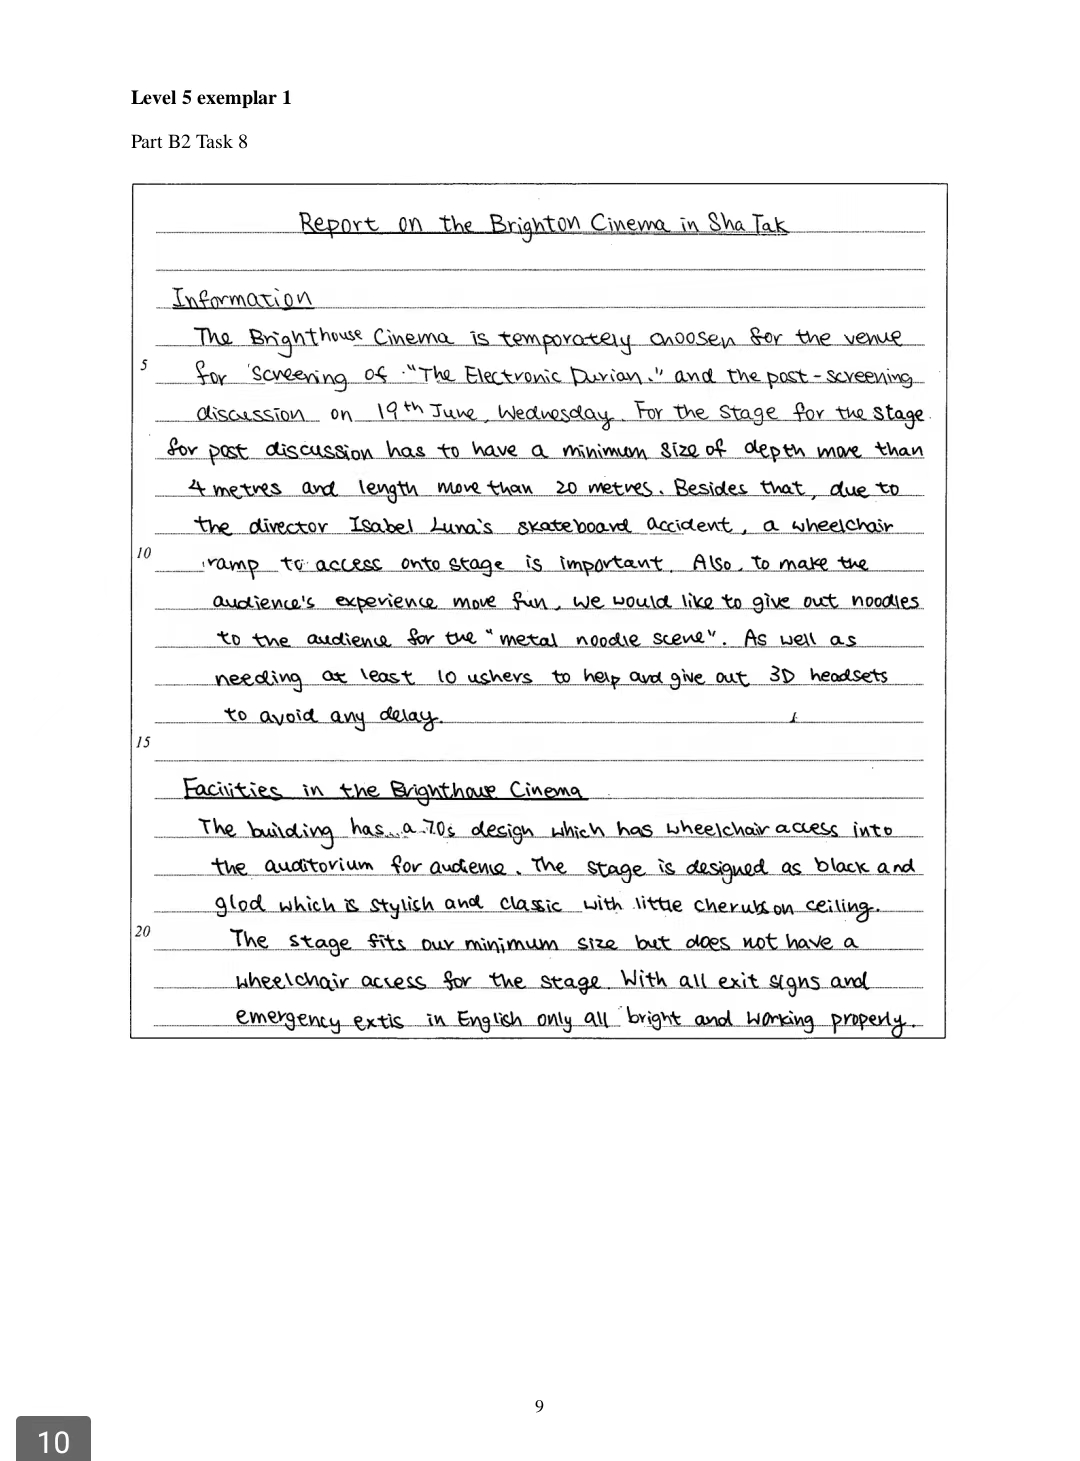 Level 5 exemplar 1
Part B2 Task 8
Report on the Brighton Cinema in Sha Tak
Information
The Brighthouse Cinema is temporately choosen for the venue
5
for screening of "The Electronic Durian." and the post-screening
discussion on 19th June, Wednesday. For the stage for the stage
for post discussion has to have a minimum size of depth more than
4 metres and length more than 20 metres. Besides that, due to
the director Isabel Luna's skateboard accident, a wheelchair
10
ramp to access onto stage is important. Also, to make the
audience's experience more fun, we would like to give out noodles
to the audience for the "metal noodle scene". As well as
needing at least 10 ushers to help and give out 3D headsets
to avoid any delay.
15
Facilities in the Brighthouse Cinema
The building has a 70s design which has wheelchair access into
the auditorium for audience. The stage is designed as black and
glod which is stylish and classic with little cherubs on ceiling.
20
The stage fits our minimum size but does not have a
wheelchair access for the stage. With all exit signs and
emergency extis in English only all bright and working properly.
9
10